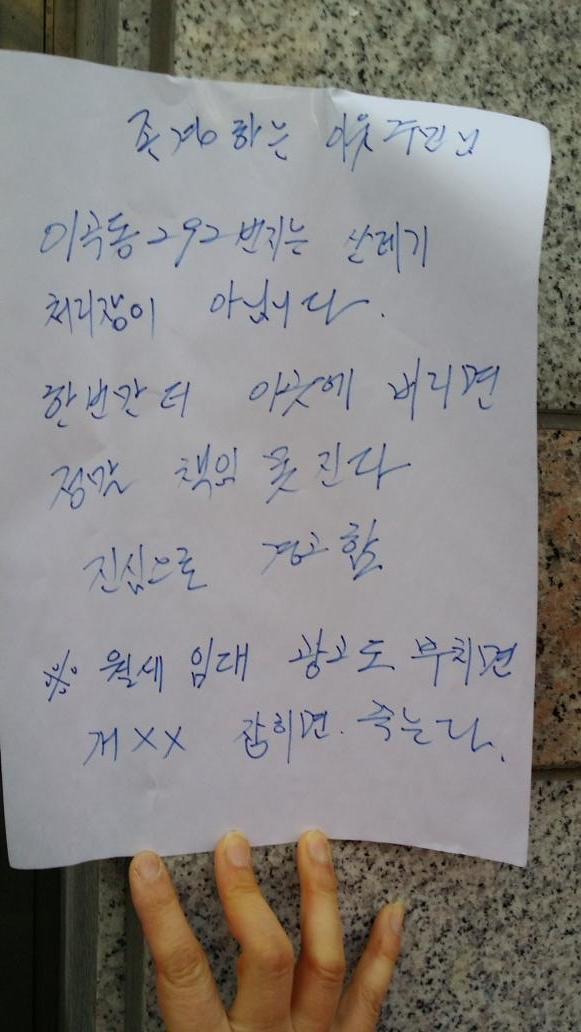 존경하는 이웃 주민님
이곡동 292번지는 쓰레기
처리장이 아닙니다.
한번만 더 이곳에 버리면
정말 책임 못 진다
진심으로 경고함
※ 월세 임대 광고도 부치면
개XX 잡히면. 죽는다.